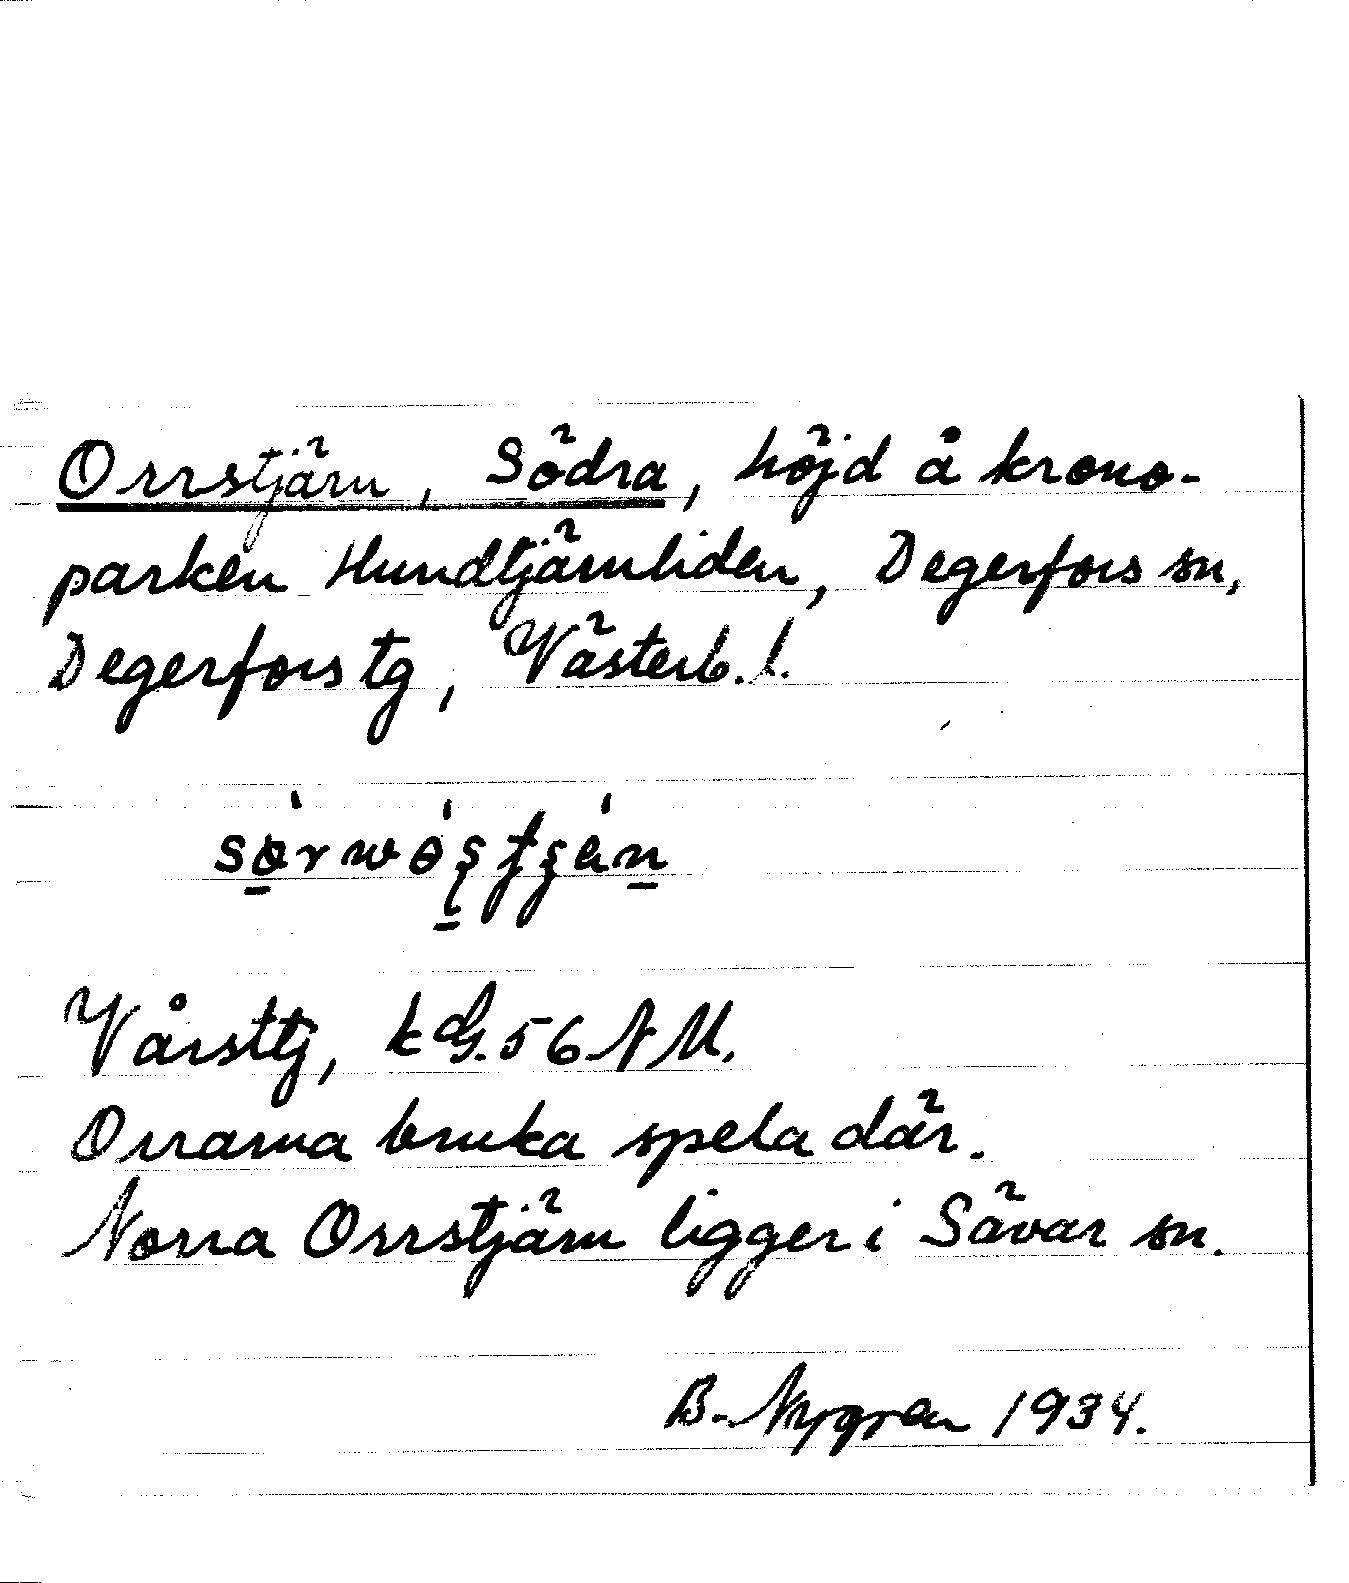 Orrstjärn, Södra, höjd å krono-
parken Hundtjärnliden, Degerfors sn,
Degerfors tg, Västerb. l.
Vårsttj, k G. 56 N M.
Orrarna bruka spela där.
Norra Orrstjärn ligger i Sävar sn.
B. Nygren 1934.